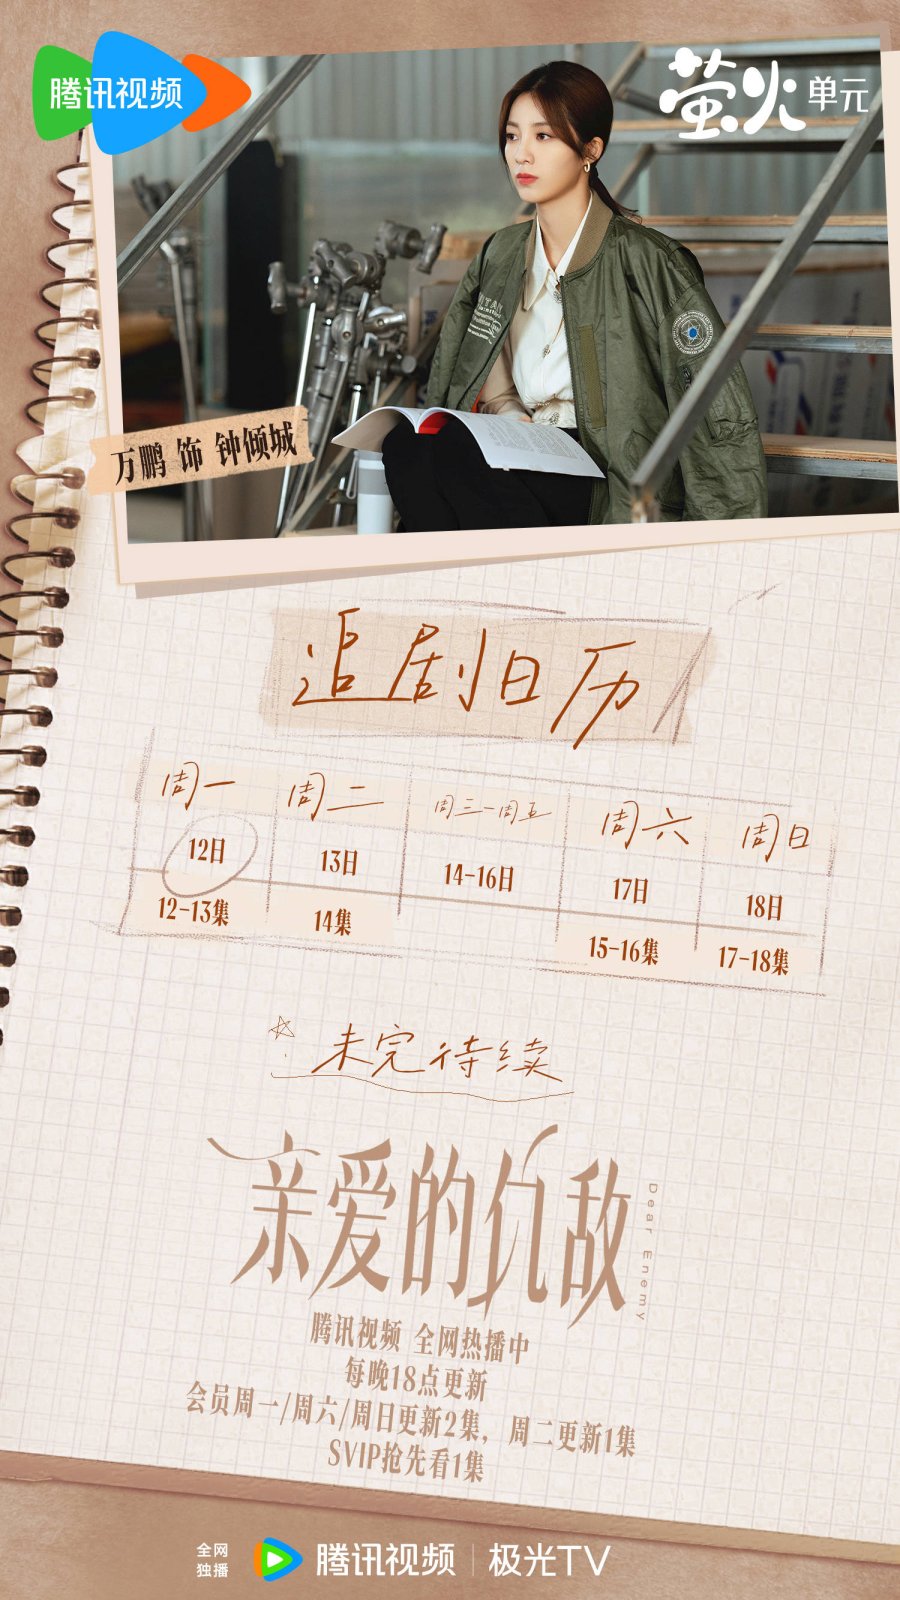 腾讯视频
萤火单元
万鹏 饰 钟倾城
追剧日历
周一 周二 周三-周五 周六 周日
12日 13日 14-16日 17日 18日
12-13集 14集 15-16集 17-18集
未完待续
亲爱的仇敌
Dear Enemy
腾讯视频 全网热播中
每晚18点更新
会员周一/周六/周日更新2集，周二更新1集
SVIP抢先看1集
全网
独播
腾讯视频 | 极光TV